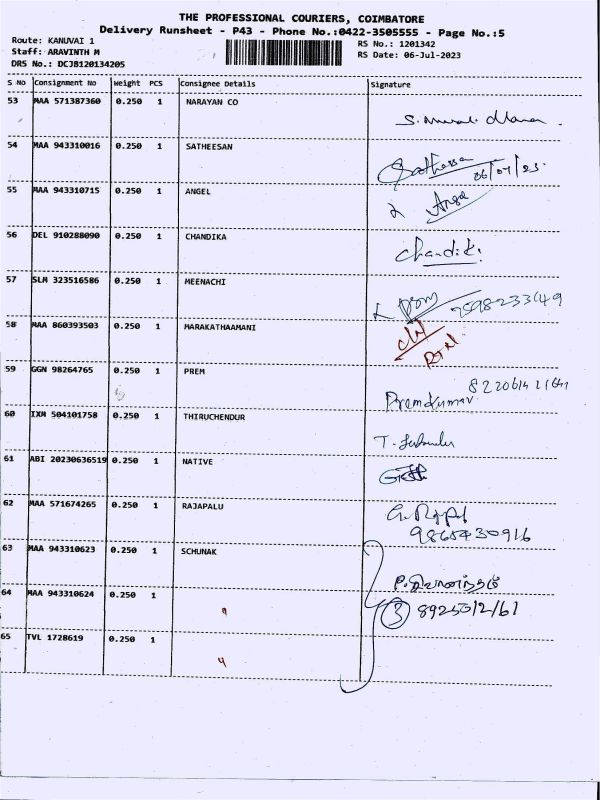 THE PROFESSIONAL COURIERS, COIMBATORE
Delivery Runsheet - P43 - Phone No.:0422-3505555 - Page No.:5
Route: KANUVAI 1
RS No.: 1201342
Staff: ARAVINTH M
RS Date: 06-Jul-2023
DRS No.: DCJB120134205
S No Consignment No Weight PCS Consignee Details Signature
53 MAA 571387360 0.250 1 NARAYAN CO
54 MAA 943310016 0.250 1 SATHEESAN
06/07/23
55 MAA 943310715 0.250 1 ANGEL
56 DEL 910288090 0.250 1 CHANDIKA
Chandika
57 SLM 323516586 0.250 1 MEENACHI
9598233149
58 MAA 860393503 0.250 1 MARAKATHAAMANI
RTN.
59 GGN 98264765 0.250 1 PREM
Premkumar
60 IXM 504101758 0.250 1 THIRUCHENDUR
61 ABI 20230636519 0.250 1 NATIVE
62 MAA 571674265 0.250 1 RAJAPALU
9865430916
63 MAA 943310623 0.250 1 SCHUNAK
64 MAA 943310624 0.250 1
3 8925012161
65 TVL 1728619 0.250 1